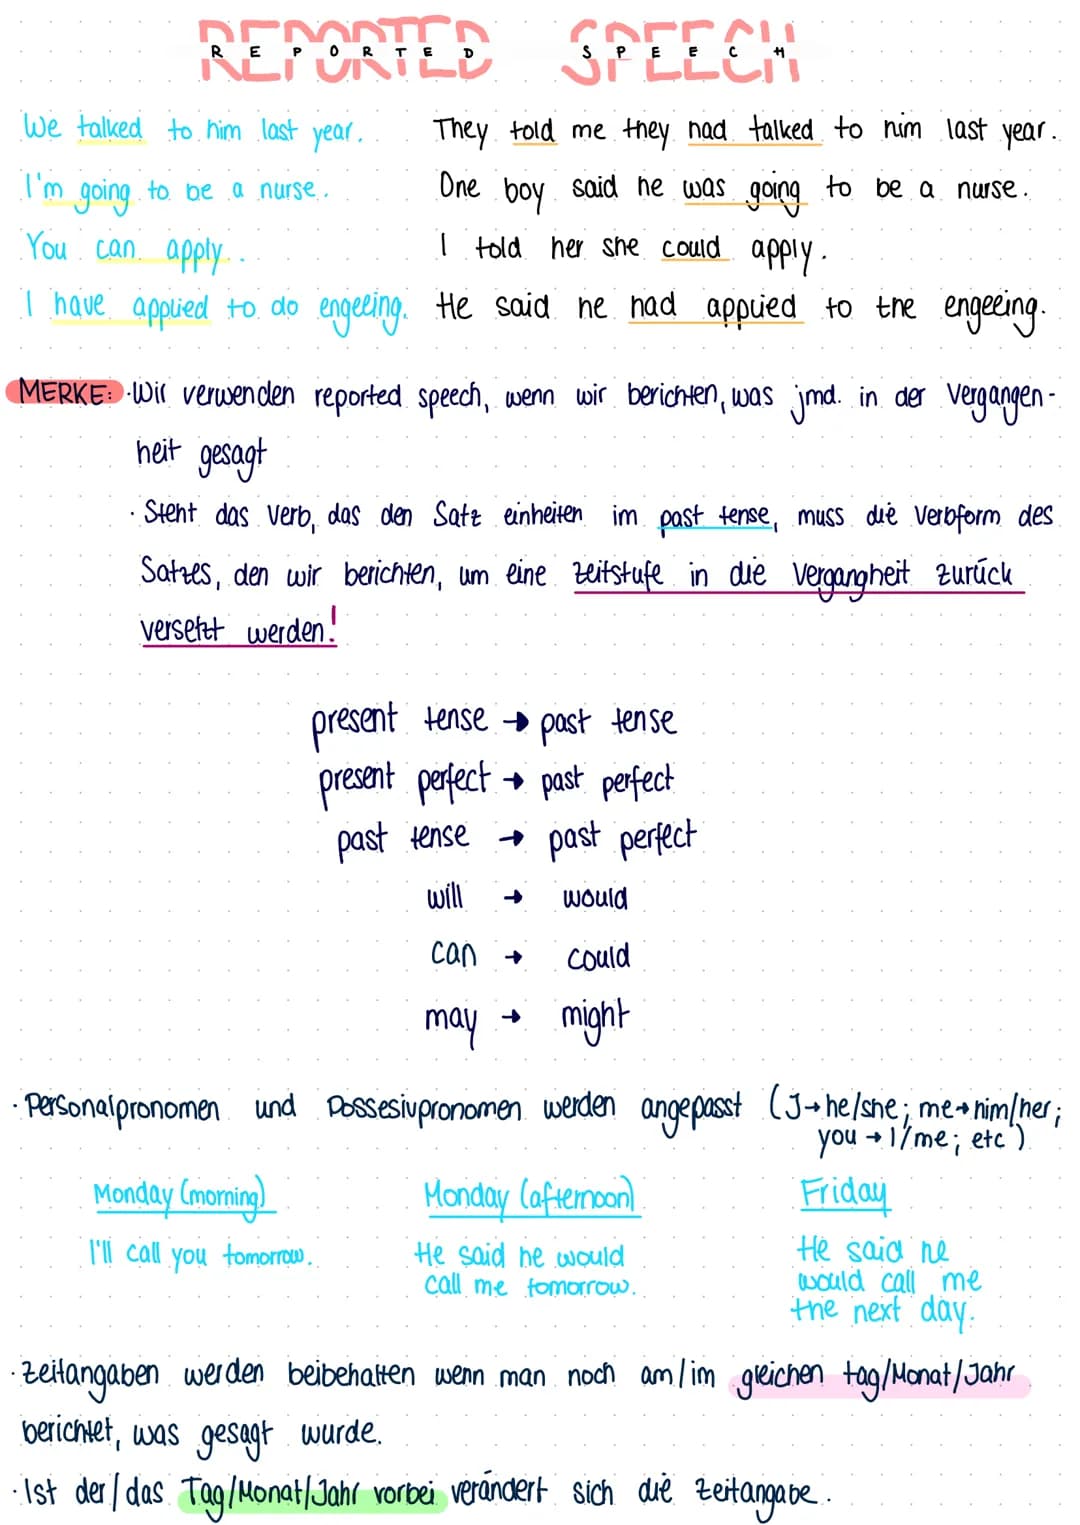 REPORTED SPEECH
We talked to him last year. They told me they had talked to him last year.
I'm going to be a nurse. One boy said he was going to be a nurse.
You can apply. I told her she could apply.
I have applied to do engeeing. He said he had applied to the engeeing.
MERKE: · Wir verwenden reported speech, wenn wir berichten, was jmd. in der Vergangen-
heit gesagt
· Steht das Verb, das den Satz einheiten im past tense, muss die Verbform des
Satzes, den wir berichten, um eine Zeitstufe in die Vergangheit zurück
versetzt werden!
present tense → past tense
present perfect → past perfect
past tense → past perfect
will → would
can → could
may → might
· Personalpronomen und Possesivpronomen werden angepasst (I→he/she; me→him/her;
you → I/me; etc)
Monday (morning) Monday (afternoon) Friday
I'll call you tomorrow. He said he would He said he
call me tomorrow. would call me
the next day.
· Zeitangaben werden beibehalten wenn man noch am/im gleichen tag/Monat/Jahr
berichtet, was gesagt wurde.
· Ist der/das Tag/Monat/Jahr vorbei verändert sich die Zeitangabe.